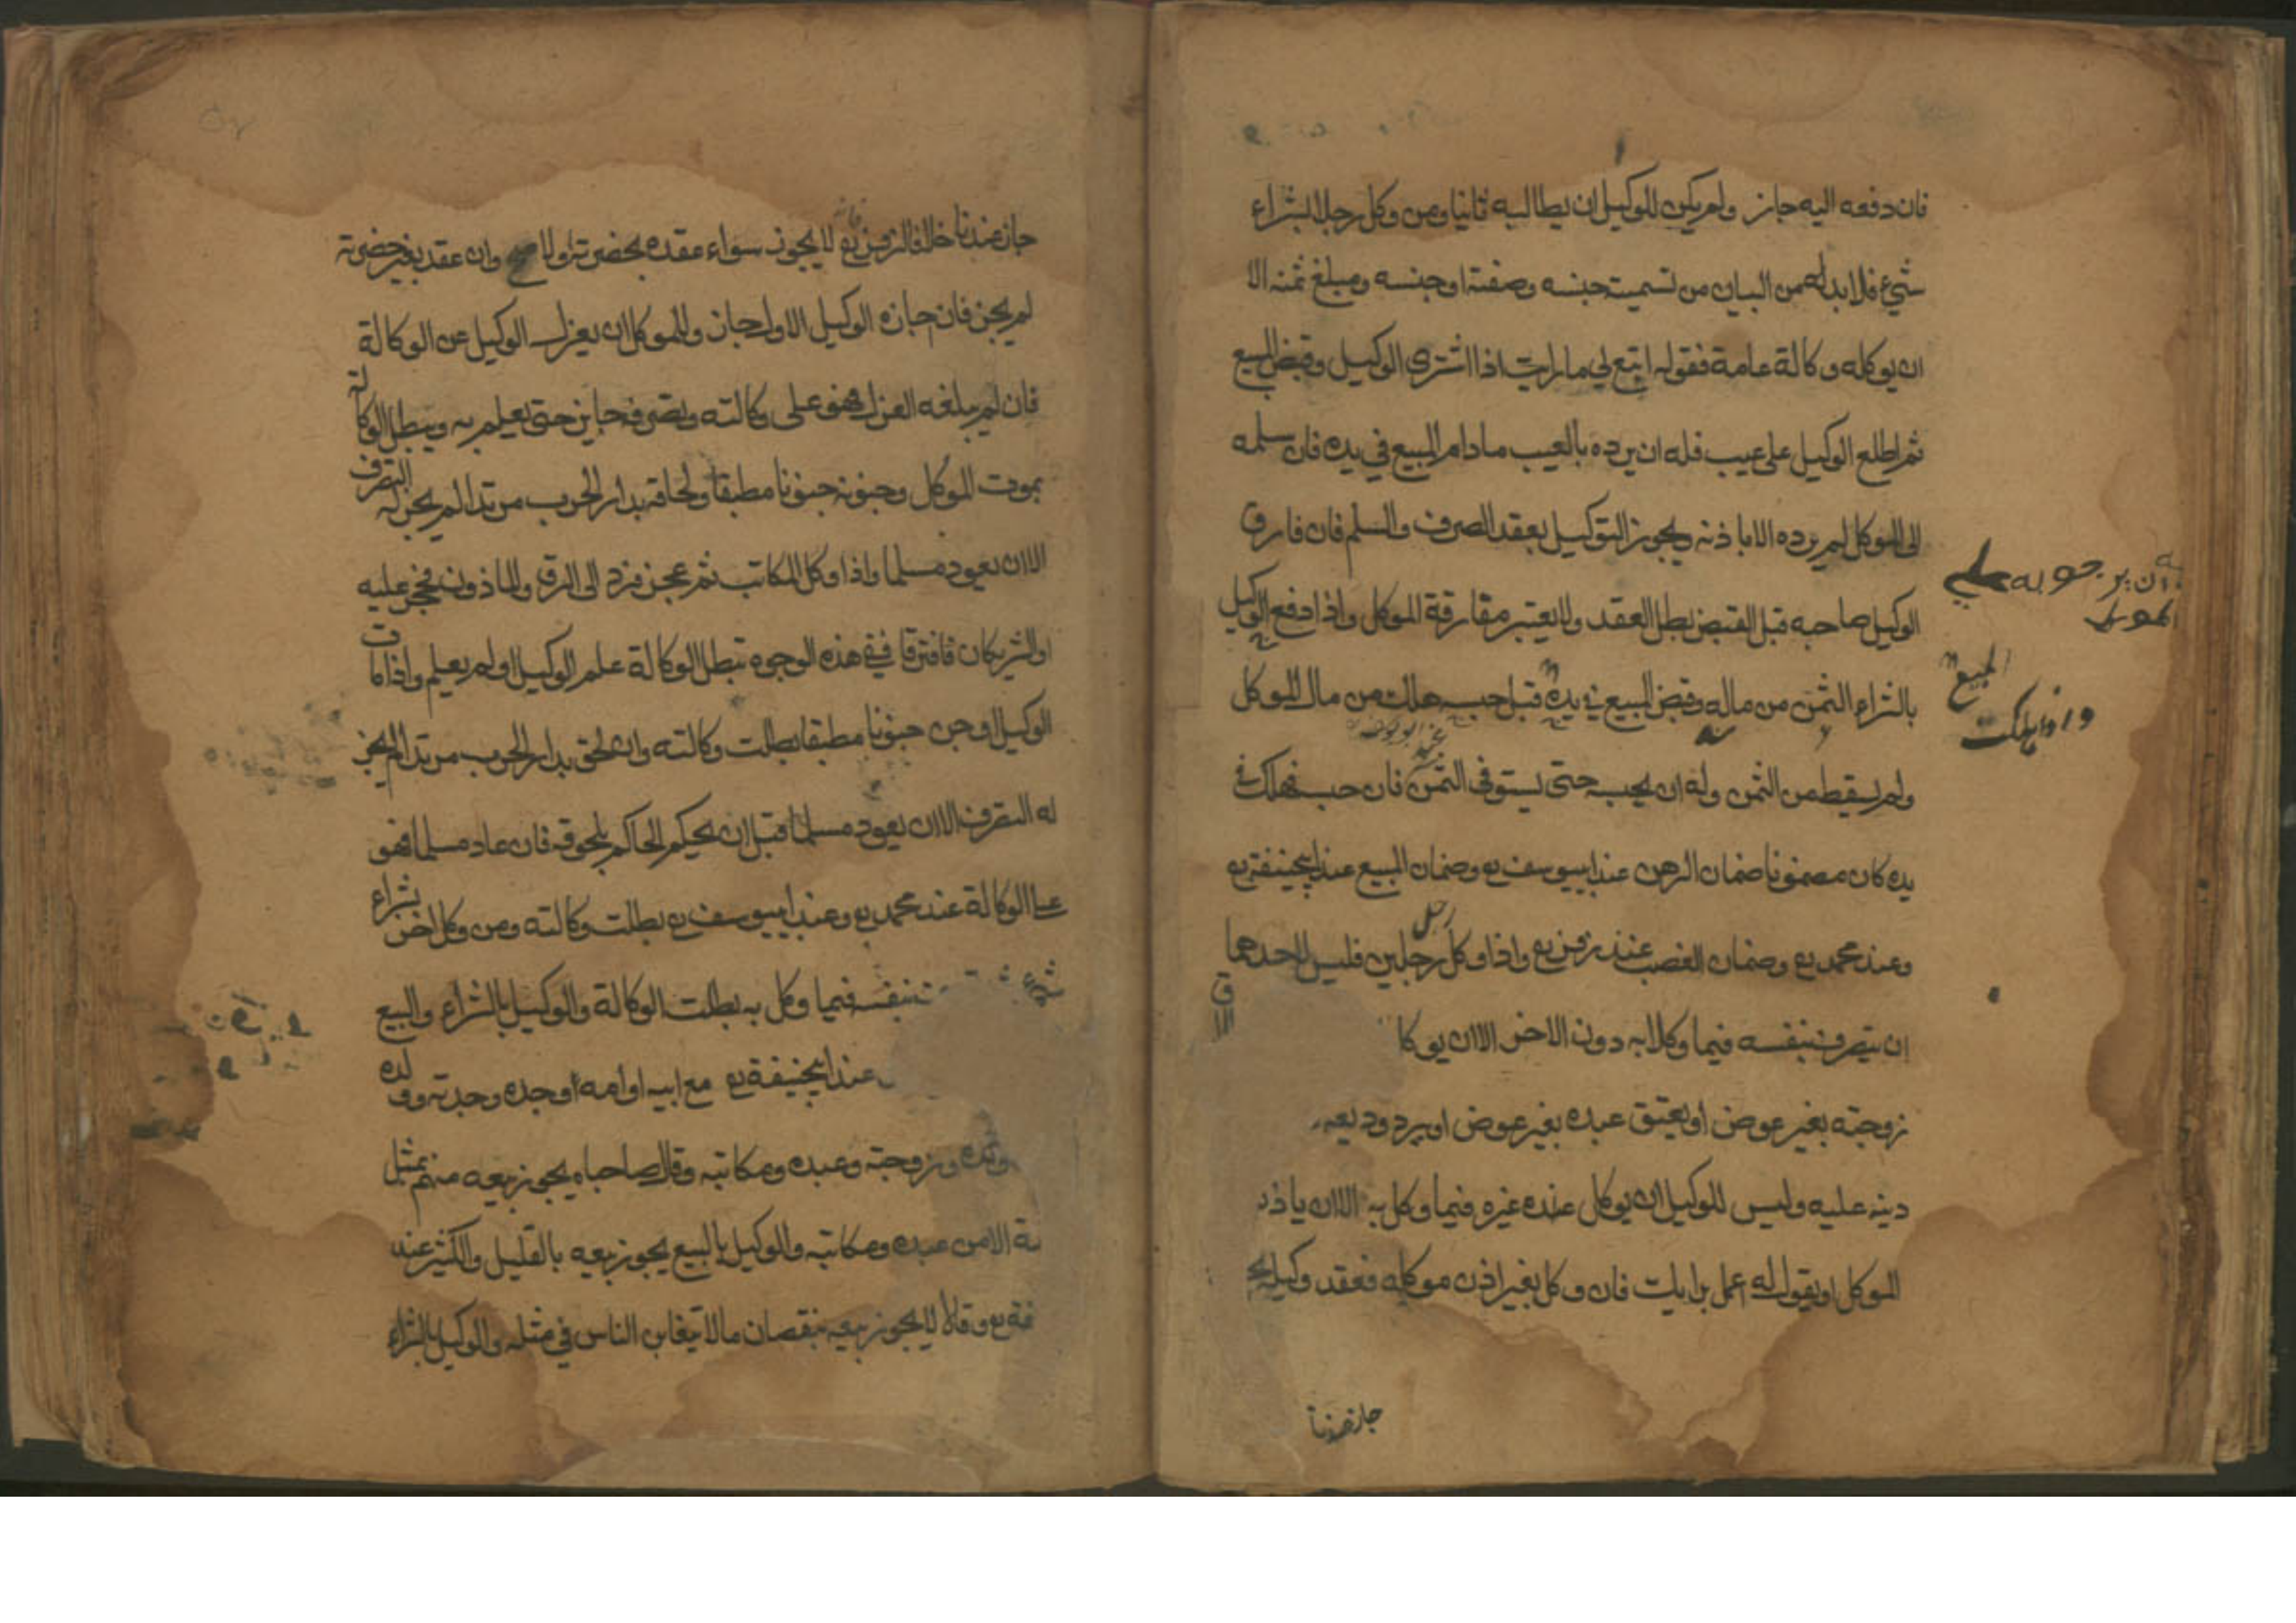 فان دفعه اليه جاز ولم يكن للوكيل ان يطالبه ثانيا ومن وكل رجلا بشراء
شيء فلا بد له من البيان من تسمية جنسه وصفته او جنسه ومبلغ ثمنه الا
ان يوكله وكالة عامة فقوله ابتع لي ما رايت اذا اشترى الوكيل وقبض المبيع
ثم اطلع الوكيل على عيب فله ان يرده بالعيب ما دام المبيع في يده فان سلمه
الى الموكل لم يرده الا باذنه ويجوز التوكيل بعقد الصرف والسلم فان فارق
الوكيل صاحبه قبل القبض بطل العقد ولا يعتبر مفارقة الموكل واذا دفع الوكيل
بالشراء الثمن من ماله وقبض المبيع في يده قبل حبسه هلك من مال الموكل
ولم يسقط من الثمن وله ان يحبسه حتى يستوفى الثمن فان حبسه فهلك في
يده كان مضمونا ضمان الرهن عند ابيوسف رح وضمان المبيع عند ابيحنيفة رح
وعند محمد رح وضمان الغصب عند زفر رح واذا وكل رجل رجلين فليس لاحدهما
ان يتصرف بنفسه فيما وكلا به دون الاخر الا ان يوكلا
زوجته بغير عوض او يعتق عبده بغير عوض او يرد وديعه
دينه عليه وليس للوكيل ان يوكل عنده غيره فيما وكل به الا ان ياذن
الموكل او يقول له اعمل برايك فان وكل بغير اذن موكله فعقد وكيله بح
جاز عندنا
ان يرجع به على
الموكل
المبيع
واذا هلك
عند ابو يوسف
جاز عندنا خلافا لزفر رح لا يجوز سواء عقده بحضرته او لا وان عقد بغير حضرته
لم يجز فان اجازه الوكيل الاول جاز وللموكل ان يعزل الوكيل عن الوكالة
فان لم يبلغه العزل فهو على وكالته وتصرفه جايز حتى يعلم به ويبطل الوكالة
بموت الموكل وجنونه جنونا مطبقا ولحاقه بدار الحرب مرتدا لم يجز له التصرف
الا ان يعود مسلما واذا وكل المكاتب ثم عجز فرد الى الرق والماذون فحجر عليه
او الشريكان فافترقا ففي هذه الوجوه تبطل الوكالة علم الوكيل او لم يعلم واذا مات
الوكيل او جن جنونا مطبقا بطلت وكالته وان لحق بدار الحرب مرتدا لم يجز
له التصرف الا ان يعود مسلما قبل ان يحكم الحاكم بلحوقه فان عاد مسلما فهو
على الوكالة عند محمد رح وعند ابيوسف رح بطلت وكالته ومن وكل اخر بشراء
شيء بنفسه فيما وكل به بطلت الوكالة والوكيل بالشراء والبيع
عند ابيحنيفة رح مع ابيه او امه او جده وجدته وولده
وزوجته وعبده ومكاتبه وقال صاحباه يجوز بيعه منهم بمثل
الا من عبده ومكاتبه والوكيل بالبيع يجوز بيعه بالقليل والكثير عند
رح وقالا لا يجوز بيعه بنقصان ما لا يتغابن الناس في مثله والوكيل بالشراء